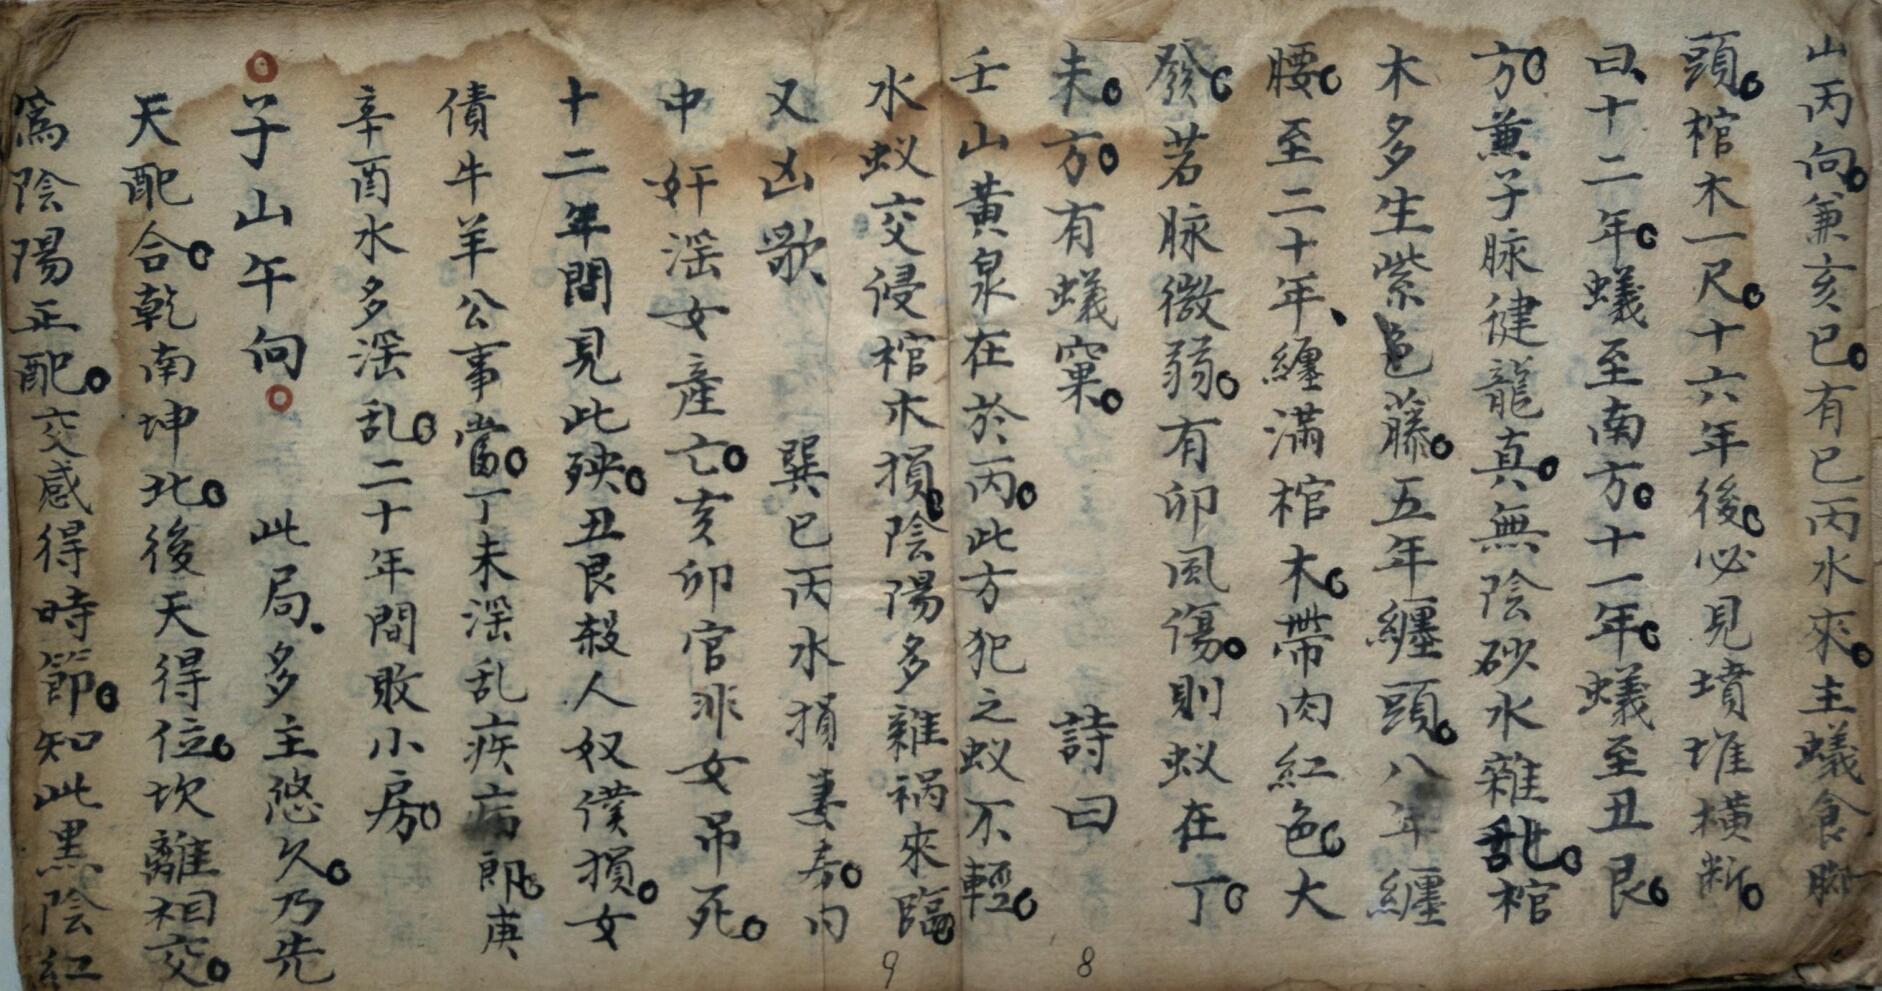 山丙向兼亥巳有巳丙水來主蟻食腳
頭棺木一尺十六年後必見墳堆橫斷
曰十二年蟻至南方十一年蟻至丑艮
方兼子脉健龍真無陰砂水雜乱棺
木多生紫色藤五年纏頭八年纏
腰至二十年纏滿棺木帶肉紅色大
發若脉微弱有卯風傷則蚁在丁
未方有蟻窠 詩曰
壬山黃泉在於丙此方犯之蚁不輕
水蚁交侵棺木損陰陽多雜禍來臨
又凶歌 巽巳丙水損妻房內
中奸滛女產亡亥卯官非女吊死
十二年間見此殃丑艮殺人奴僕損女
債牛羊公事當丁未滛乱疾病郎庚
辛酉水多滛乱二十年間敗小房
子山午向 此局多主悠久乃先
天配合乾南坤北後天得位坎離相交
為陰陽正配交感得時節知此黑陰紅
8
9